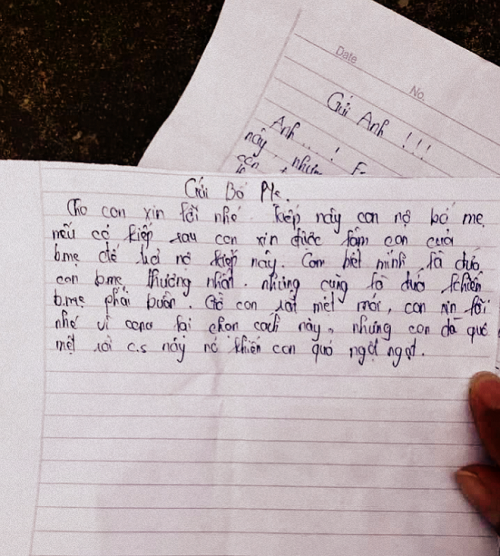 Date
No.
Gửi Anh !!!
Anh .. !
này, nhưng
Gửi Bố Mẹ.
Cho con xin lỗi nhé. Kiếp này con nợ bố mẹ,
nếu có kiếp sau con xin được làm con của
b.mẹ để trả nợ kiếp này. Con biết mình là đứa
con b.mẹ thương nhất. nhưng cũng là đứa khiến
b.mẹ phải buồn. Giờ con rất mệt mỏi, con xin lỗi
nhé vì con lại chọn cách này, nhưng con đã quá
mệt rồi c.s này nó khiến con quá ngột ngạt.